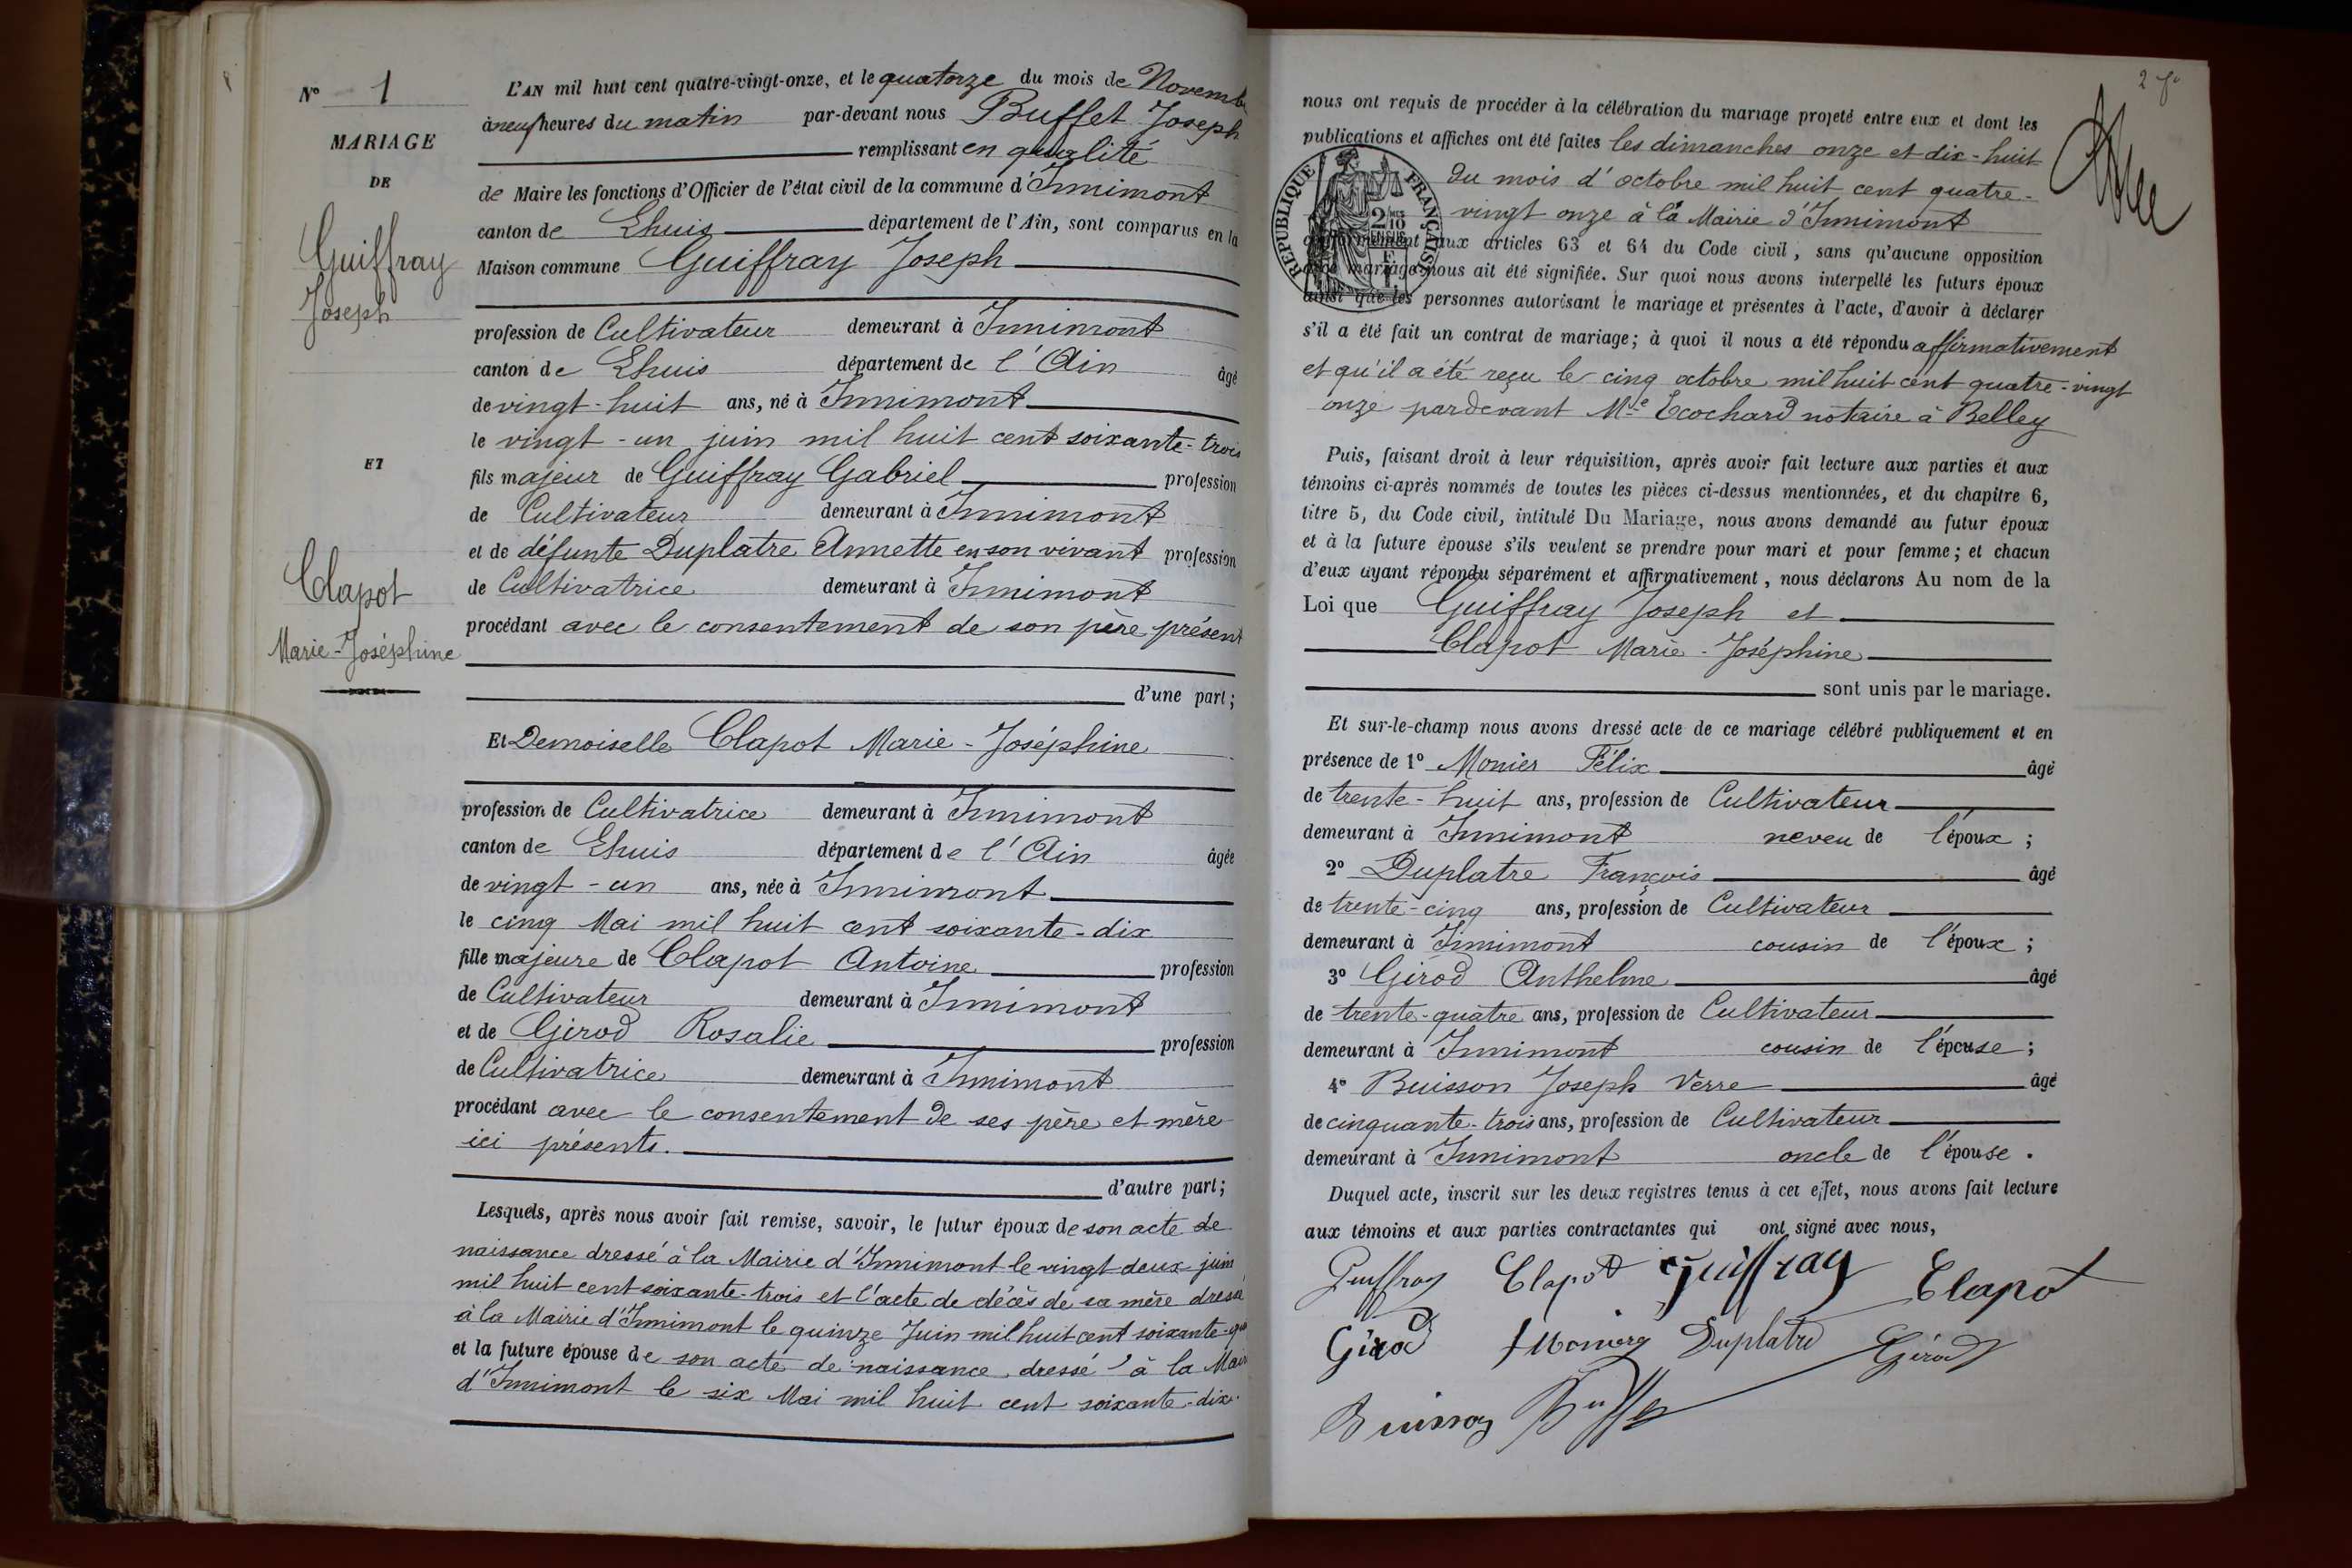 N° 1
MARIAGE
DE
Guiffray
Joseph
ET
Clapot
Marie-Joséphine
L'AN mil huit cent quatre-vingt-onze, et le quatorze du mois de Novemb
à neuf heures du matin par-devant nous Buffet Joseph
remplissant en qualité
de Maire les fonctions d'Officier de l'état civil de la commune d'Innimont
canton de Lhuis département de l'Ain, sont comparus en la
Maison commune Guiffray Joseph
profession de Cultivateur demeurant à Innimont
canton de Lhuis département de l'Ain âgé
de vingt-huit ans, né à Innimont
le vingt-un juin mil huit cent soixante-trois
fils majeur de Guiffray Gabriel profession
de Cultivateur demeurant à Innimont
et de défunte Duplatre Annette en son vivant profession
de Cultivatrice demeurant à Innimont
procédant avec le consentement de son père présent
d'une part;
Et Demoiselle Clapot Marie-Joséphine
profession de Cultivatrice demeurant à Innimont
canton de Lhuis département de l'Ain âgée
de vingt-un ans, née à Innimont
le cinq Mai mil huit cent soixante-dix
fille majeure de Clapot Antoine profession
de Cultivateur demeurant à Innimont
et de Girod Rosalie profession
de Cultivatrice demeurant à Innimont
procédant avec le consentement de ses père et mère
ici présents.
d'autre part;
Lesquels, après nous avoir fait remise, savoir, le futur époux de son acte de
naissance dressé à la Mairie d'Innimont le vingt deux juin
mil huit cent soixante-trois et l'acte de décès de sa mère dressé
à la Mairie d'Innimont le quinze Juin mil huit cent soixante-qua
et la future épouse de son acte de naissance dressé à la Mairi
d'Innimont le six Mai mil huit cent soixante-dix.
nous ont requis de procéder à la célébration du mariage projeté entre eux et dont les
publications et affiches ont été faites les dimanches onze et dix-huit
du mois d'octobre mil huit cent quatre-
vingt onze à la Mairie d'Innimont
RÉPUBLIQUE FRANÇAISE
conformément aux articles 63 et 64 du Code civil, sans qu'aucune opposition
mariage nous ait été signifiée. Sur quoi nous avons interpellé les futurs époux
ainsi que les personnes autorisant le mariage et présentes à l'acte, d'avoir à déclarer
s'il a été fait un contrat de mariage; à quoi il nous a été répondu affirmativement
et qu'il a été reçu le cinq octobre mil huit cent quatre-vingt
onze pardevant Mtre Ecochard notaire à Belley
Puis, faisant droit à leur réquisition, après avoir fait lecture aux parties et aux
témoins ci-après nommés de toutes les pièces ci-dessus mentionnées, et du chapitre 6,
titre 5, du Code civil, intitulé Du Mariage, nous avons demandé au futur époux
et à la future épouse s'ils veulent se prendre pour mari et pour femme; et chacun
d'eux ayant répondu séparément et affirmativement, nous déclarons Au nom de la
Loi que Guiffray Joseph et
Clapot Marie-Joséphine
sont unis par le mariage.
Et sur-le-champ nous avons dressé acte de ce mariage célébré publiquement et en
présence de 1° Monier Félix âgé
de trente-huit ans, profession de Cultivateur
demeurant à Innimont neveu de l'époux;
2° Duplatre François âgé
de trente-cinq ans, profession de Cultivateur
demeurant à Innimont cousin de l'époux;
3° Girod Anthelme âgé
de trente-quatre ans, profession de Cultivateur
demeurant à Innimont cousin de l'épouse;
4° Buisson Joseph Verre âgé
de cinquante-trois ans, profession de Cultivateur
demeurant à Innimont oncle de l'épouse.
Duquel acte, inscrit sur les deux registres tenus à cet effet, nous avons fait lecture
aux témoins et aux parties contractantes qui ont signé avec nous,
Guiffray Clapot Guiffray Clapot
Girod Duplatre Girod
Buisson Buffet